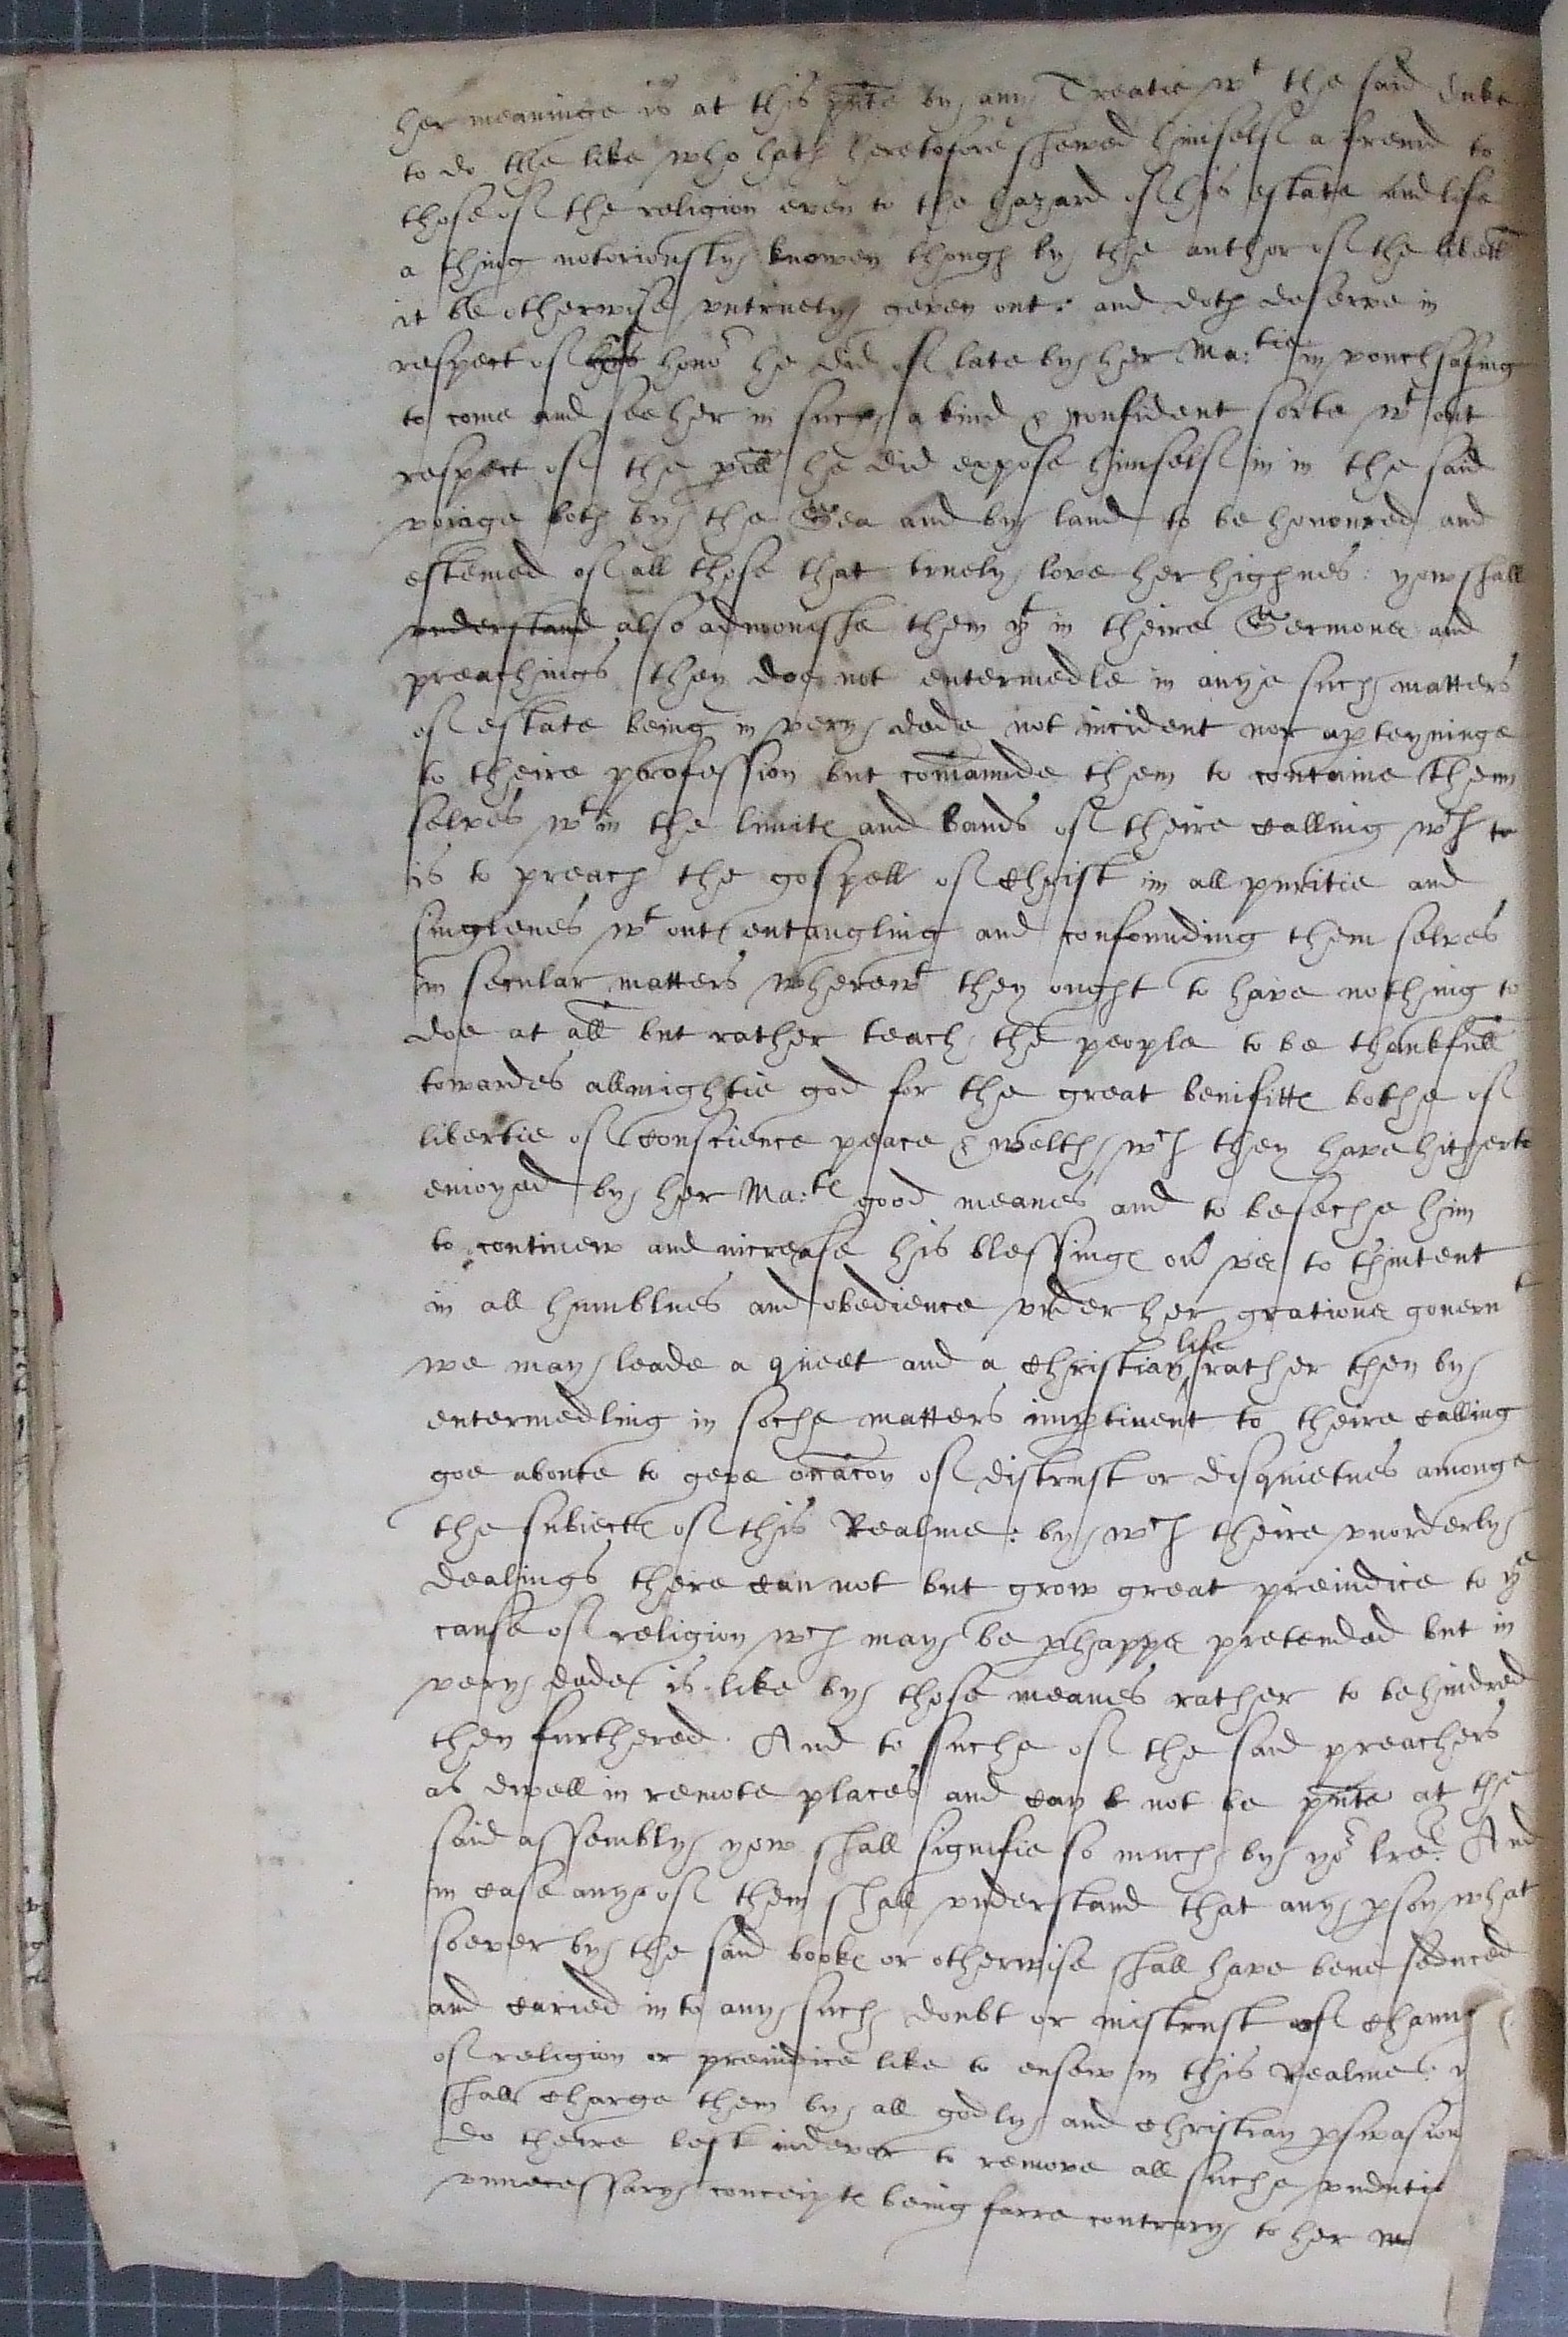 her meaninge is at this pnte by any Treatie wt the said duke
to do the like who hath heretofore shewed himself a freind to
those of the religion even to the hazard of his estate and life
a thing notoriously knowen though by the author of the libell
it be otherwise untruely geven out: and doth deserve in
respect of his hono r he did of late by her Ma:tie in vouchsafing
to come and see her in such a kind & confident sorte wt out
respect of the pill he did expose himself in in the said
voiage both by the Sea and by land to be honoured and
estemed of all those that truely love her highnes: yow shall
understand also admonishe them yt in theire Sermons and
preachings they doe not entermedle in anye such matters
of estate being in very dede not incident nor apteyninge
to theire profession but comaunde them to containe them
selves wt in the limits and bands of theire calling wch to
is to preach the gospell of Christ in all puritie and
singlenes wt oute entangling and confounding them selves
in secular matters wherewt they ought to have nothing to
doe at all but rather teach the people to be thankfull
towardes allmightie god for the great benifitte bothe of
libertie of conscience peace & welth wch they have hitherto
enioyed by her Ma:te good meanes and to beseche him
to continew and increase his blessinge ou r us to thintent
in all humblnes and obedience under her gratious govern t
we may leade a quiet and a Christian life rather then by
entermedling in soche matters impertinent to theire calling
goe aboute to geve occacon of distrust or disquietnes amonge
the subiects of this Realme: by wch theire unorderly
dealings there can not but grow great preiudice to ye
cause of religion wch may be phapps pretended but in
very dede is like by those meanes rather to be hindred
then furthered. And to suche of the said preachers
as dwell in remote places and can b not be pnte at the
said assembly yow shall signifie so much by yo r lres. And
in case anye of them shall understand that any pson what
soever by the said booke or otherwise shall have bene seduced
and caried in to any such doubt or mistrust of chaung
of religion or preiudice like to ensew in this Realme: y
shall charge them by all godly and Christian pswasion
do theire best indevor to remove all suche undutif
unnecessary conceipte being farre contrary to her m